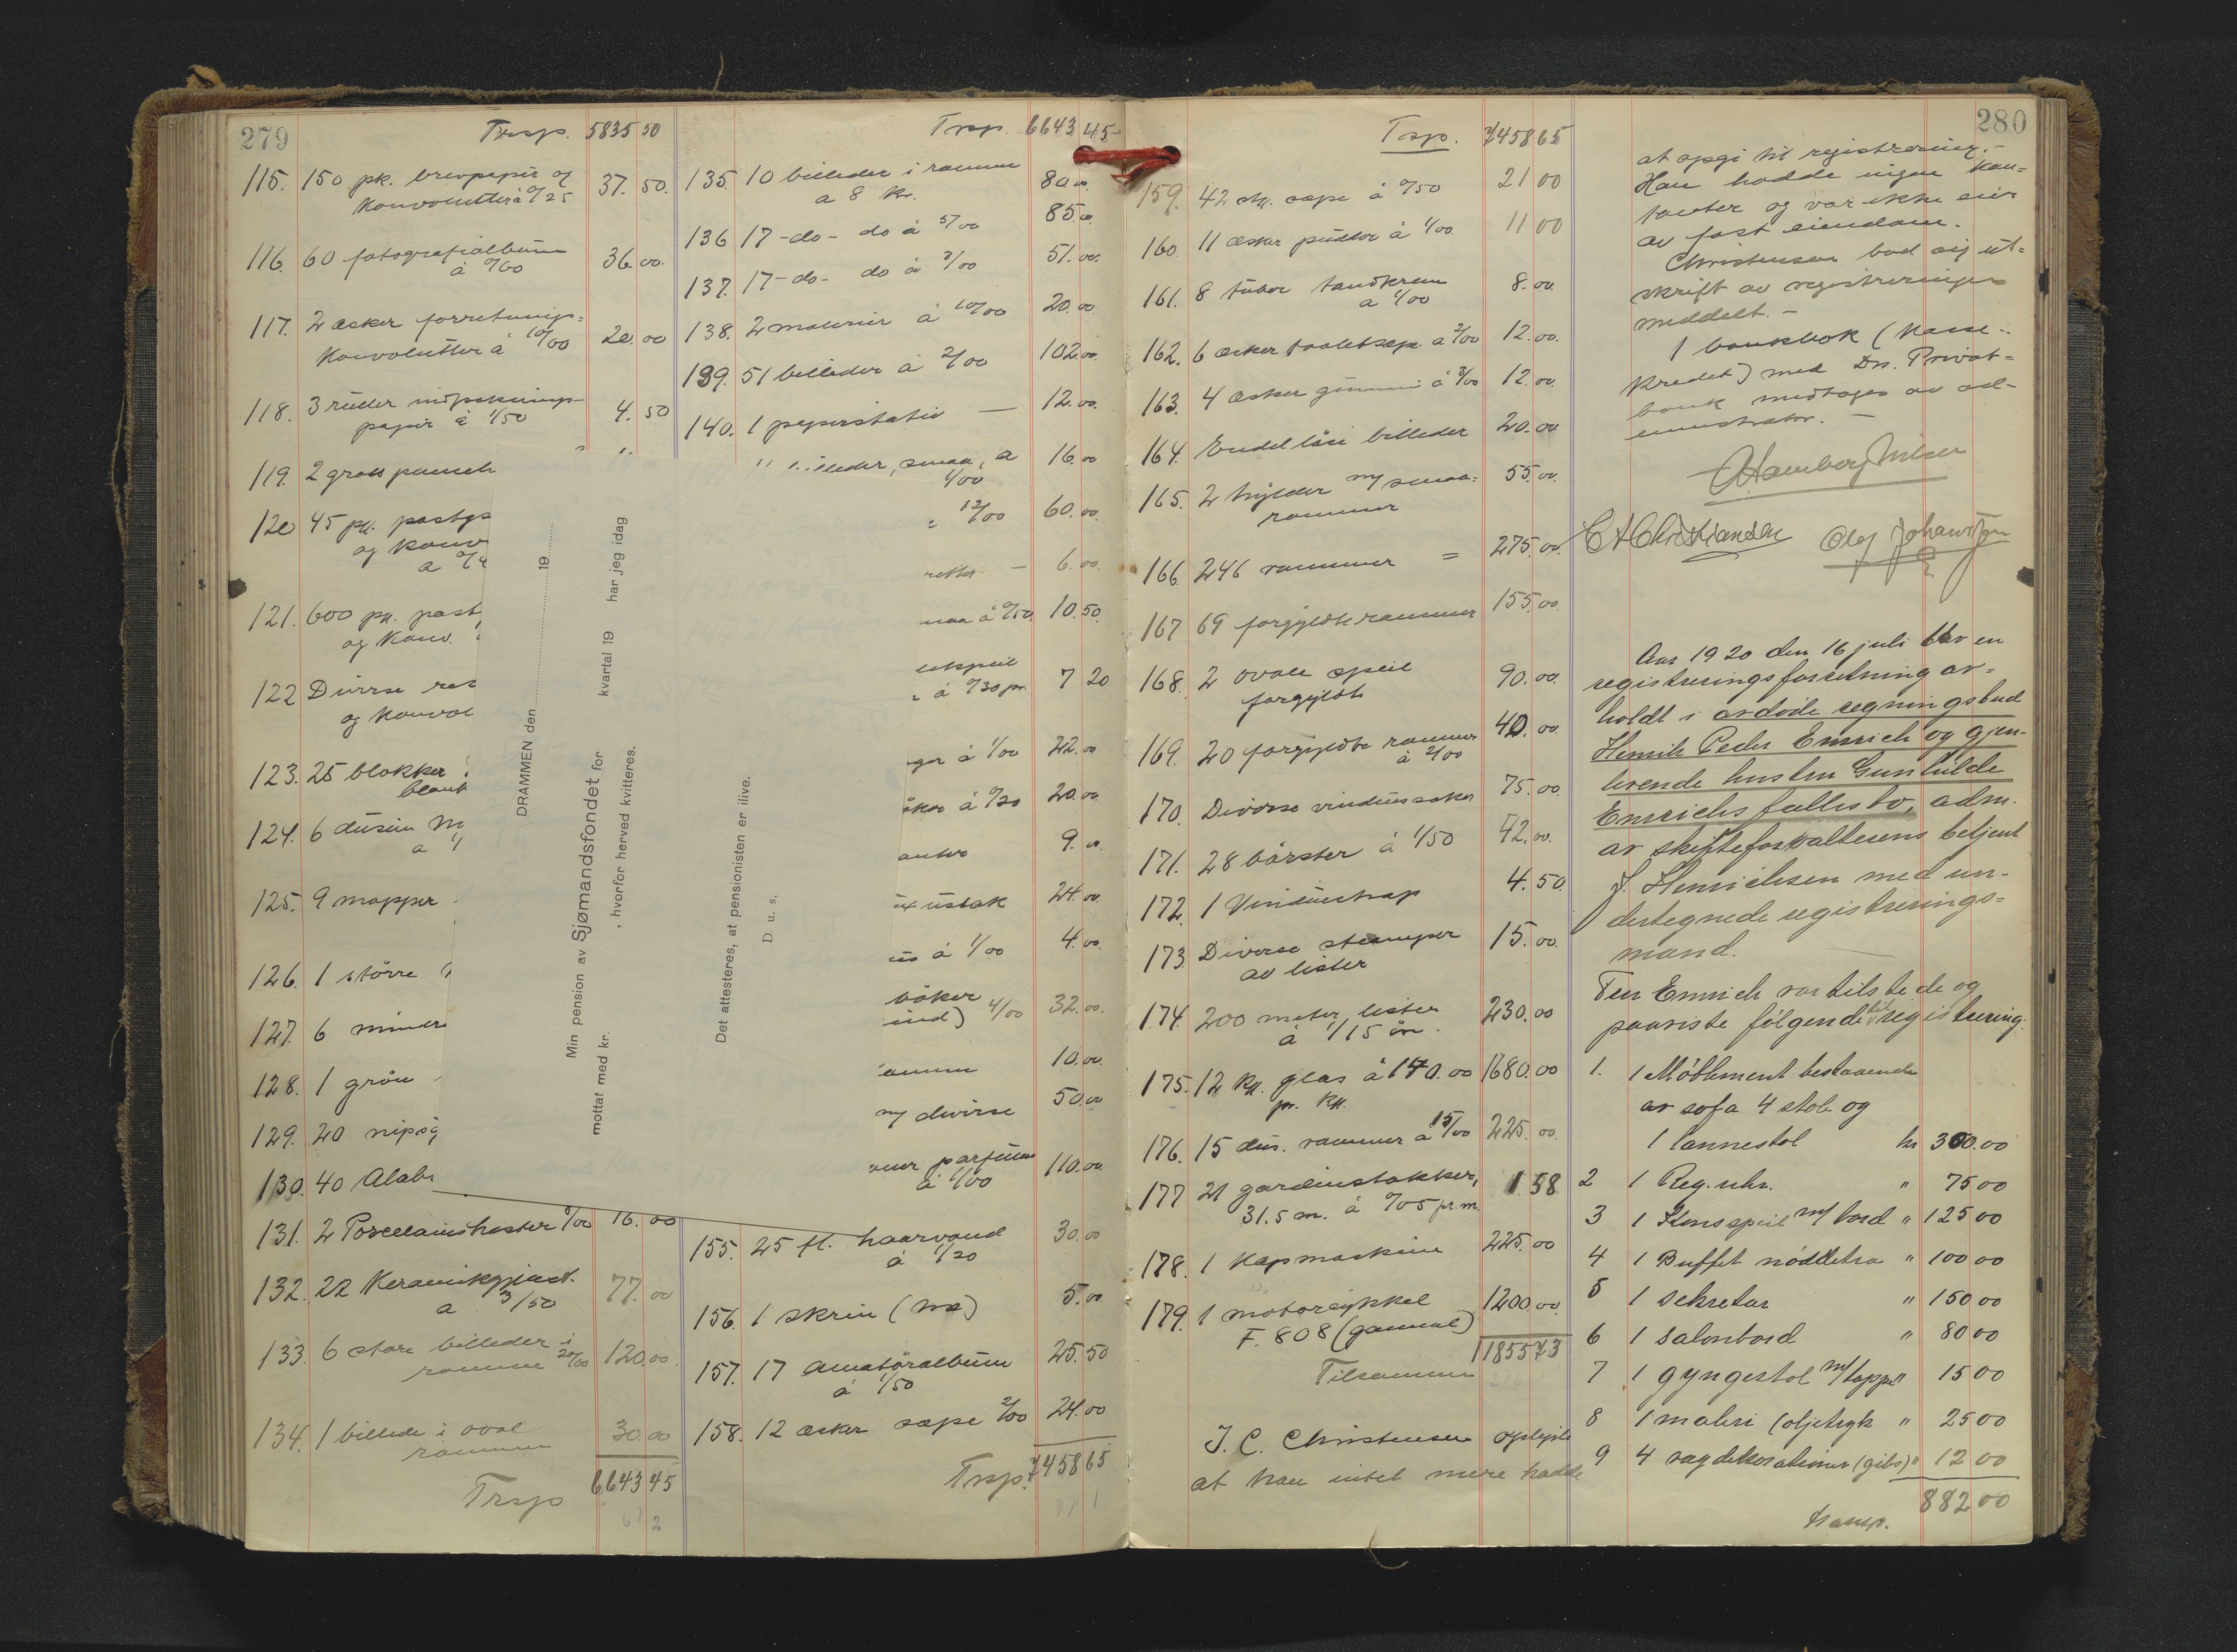 279
Trsp. 5835 50
115. 150 pk. brevpapir og 37. 50.
Konvolutter à 0/25
116. 60 fotografialbum 36. 00.
à 0/60
117. 2 æsker forretnings-
Konvolutter à 10/00 20. 00
118. 3 ruller indpaknings-
papir à 1/50 4. 50
119. 2 gross
120 45 pk.
og Konv
a
121. 600 pk. post
og Konv.
122 Diverse
og Konvol
123. 25 blokker
124. 6 dusin
a
125. 9 mapper
126. 1 större
127. 6 mindre
128. 1 grön
129. 20
130. 40 Alab
131. 2 Porcellainshester 8/00 16. 00
132. 22 Keramikgjenst. 77. 00
a 3/50
133. 6 store billeder i
ramme 20/00 120. 00.
134. 1 billede i oval 30. 00
ramme
Trsp 6643 45
DRAMMEN den 19
Min pension av Sjømandsfondet for kvartal 19 har jeg idag
mottat med kr. , hvorfor herved kvitteres.
Det attesteres, at pensionisten er ilive.
D. u. s.
Trsp. 6643 45
135. 10 billeder i ramme 80 00.
a 8 kr.
136 17 -do- do à 5/00 85. 00
137. 17 -do- do à 3/00 51. 00.
138. 2 malerier à 10/00 20. 00
139. 51 billeder à 2/00 102. 00.
140. 1 papirstativ — 12. 00.
billeder, smaa, a 16. 00
1/00
12/00 60. 00.
— 6. 00.
maa à 0/50 10. 50.
speil
à 0/30 pr. 7 20
ger à 1/00 22. 00
à 0/20 20. 00
9. 00.
24. 00.
à 1/00 4. 00.
bøker
ind) 4/00 32. 00.
ramme 10. 00.
m/ diverse 50. 00
parfume 110. 00
à 1/00
155. 25 fl. haarvand 30. 00
à 1/20
156. 1 skrin 5. 00.
157. 17 amatöralbum 25. 50
à 1/50
158. 12 æsker sæpe 2/00 24. 00
Trsp. 7458 65
Trsp. 7458 65
159. 42 stk. sæpe à 0/50 21 00
160. 11 æsker pudder à 1/00. 11 00
161. 8 tuber tandkrem 8. 00.
a 1/00
162. 6 æsker toaletsæpe a 2/00 12. 00.
163. 4 æsker gummi à 3/00 12. 00.
164. Endel löse billeder 20. 00
165. 2 hylder m/ smaa- 55. 00.
rammer
166. 246 rammer = 275. 00.
167 69 forgyldte rammer 155. 00.
168. 2 ovale speil 90. 00.
forgyldte
169. 20 forgyldte rammer 40. 00.
à 2/00
170. Diverse vinduessaker 75. 00.
171. 28 börster à 1/50 42. 00.
172. 1 Vindustrap 4. 50.
173. Diverse stumper 15. 00.
av lister
174. 200 meter lister 230. 00
à 1/15 öre.
175. 12 kk. glas à 140.00 1680. 00
pr. kk.
176. 15 dus. rammer à 15/00 225. 00.
177 21 gardinstokker, 1 58
31.5 m. à 0/05 pr.m.
178. 1 Kapmaskine 225. 00
179. 1 motorcykkel 1200. 00.
F. 808 (gammel)
Tilsammen 11855 73
J. C. Christensen oplyste
at han intet mere hadde
280
at opgi til registrering.-
Han hadde ingen kon-
tanter og var ikke eier
av fast eiendom.
Christensen bad sig ut-
skrift av registreringen
meddelt. -
1 bankbok (Kasse-
kredit) med Drs. Privat-
bank mottages av ad-
ministrator. -
C A Christiansen Olaf Johansen
Aar 1920 den 16 juli blev en
registreringsforretning av-
holdt i avdöde regningsbud
Henrik Peder Emrich og gjen-
levende hustru Gunhilde
Emrichs fællesbo, adm.
av skifteforvalterens betjent
J. Henrichsen med un-
dertegnede registrerings-
mand.
Fru Emrich var tilstede og
paaviste fölgende til registrering:
1. 1 Möblement bestaaende
av sofa 4 stole og
1 lænestol kr 300.00
2 1 Reg. uhr. " 75 00
3 1 Konsspeil m/ bord " 125 00
4 1 Buffet nöddetræ " 100 00
5 1 Sekretær " 150 00
6 1 Salonbord " 80 00
7 1 gyngestol m/ teppe " 15 00
8 1 maleri (oljetryk " 25 00
9 4 vægdekorationer (gibs) " 12 00
Transp. 882 00